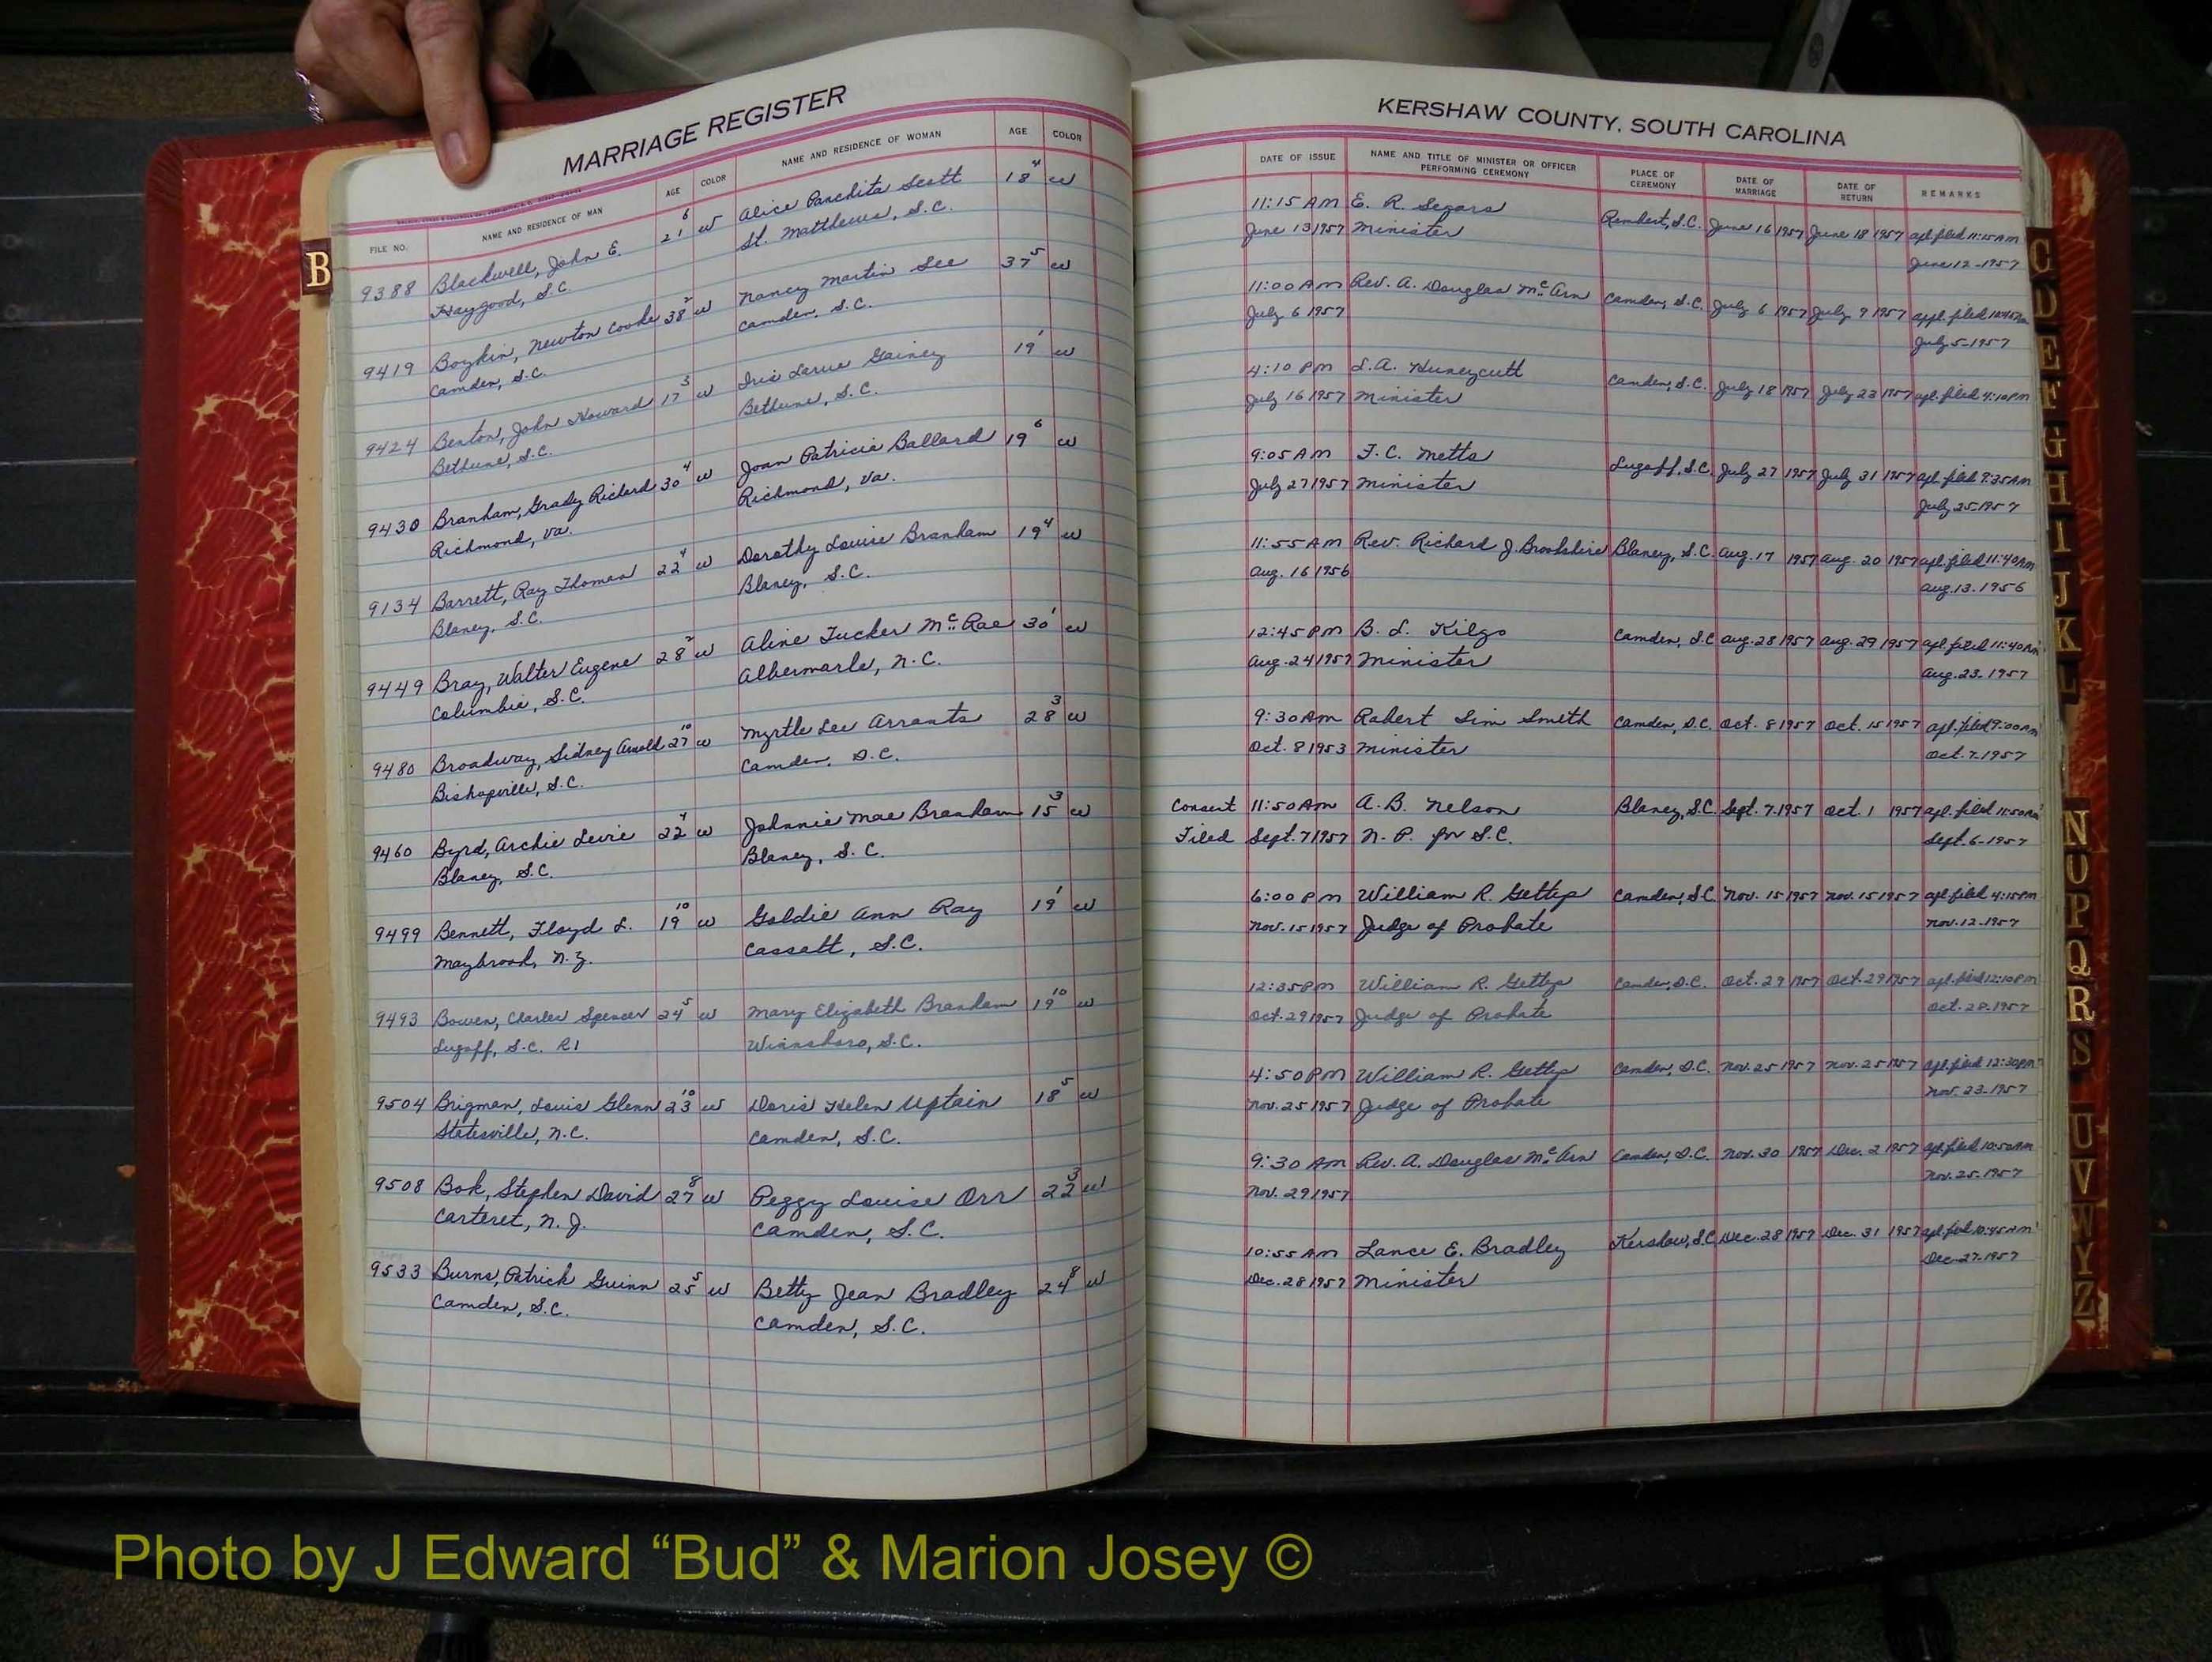 MARRIAGE REGISTER
FILE NO. NAME AND RESIDENCE OF MAN AGE COLOR NAME AND RESIDENCE OF WOMAN AGE COLOR
B
9388 Blackwell, John E. 21 6 w Alice Panchita Scott 18 4 w
Haygood, S.C. St. Matthews, S.C.
9419 Boykin, Newton Cooke 38 2 w Nancy Martin Lee 37 5 w
Camden, S.C. Camden, S.C.
9424 Benton, John Howard 17 3 w Iris Larue Gainey 19 1 w
Bethune, S.C. Bethune, S.C.
9430 Branham, Grady Richard 30 4 w Joan Patricia Ballard 19 6 w
Richmond, Va. Richmond, Va.
9134 Barrett, Ray Thomas 22 4 w Dorothy Louise Branham 19 4 w
Blaney, S.C. Blaney, S.C.
9449 Bray, Walter Eugene 28 2 w Aline Tucker McRae 30 1 w
Columbia, S.C. Albermarle, N.C.
9480 Broadway, Sidney Arnold 27 10 w Myrtle Lee Arrants 28 3 w
Bishopville, S.C. Camden, S.C.
9460 Byrd, Archie Levie 22 4 w Johnnie Mae Branham 15 3 w
Blaney, S.C. Blaney, S.C.
9499 Bennett, Floyd L. 19 10 w Goldie Ann Ray 19 1 w
Maybrook, N.Y. Cassatt, S.C.
9493 Bowen, Charles Spencer 24 5 w Mary Elizabeth Branham 19 10 w
Lugoff, S.C. R1 Winnsboro, S.C.
9504 Brigman, Louis Glenn 23 10 w Doris Helen Uptain 18 5 w
Statesville, N.C. Camden, S.C.
9508 Bok, Stephen David 27 8 w Peggy Louise Orr 22 3 w
Carteret, N.J. Camden, S.C.
9533 Burns, Patrick Guinn 25 5 w Betty Jean Bradley 24 8 w
Camden, S.C. Camden, S.C.
KERSHAW COUNTY, SOUTH CAROLINA
DATE OF ISSUE NAME AND TITLE OF MINISTER OR OFFICER PERFORMING CEREMONY PLACE OF CEREMONY DATE OF MARRIAGE DATE OF RETURN REMARKS
11:15 AM E. R. Segars Rembert, S.C. June 16 1957 June 18 1957 apl. filed 11:15 AM
June 13 1957 Minister June 12-1957
11:00 AM Rev. A. Douglas McArn Camden, S.C. July 6 1957 July 9 1957 appl. filed 10:45 AM
July 6 1957 July 5-1957
4:10 PM L.A. Huneycutt Camden, S.C. July 18 1957 July 23 1957 apl. filed 4:10 PM
July 16 1957 Minister
9:05 AM F.C. Metts Lugoff, S.C. July 27 1957 July 31 1957 apl. filed 9:35 AM
July 27 1957 Minister July 25-1957
11:55 AM Rev. Richard J. Brookshire Blaney, S.C. Aug. 17 1957 Aug. 20 1957 apl. filed 11:40 AM
Aug. 16 1956 Aug. 13-1956
12:45 PM B. L. Kilgo Camden, S.C. Aug. 28 1957 Aug. 29 1957 apl. filed 11:40 AM
Aug. 24 1957 Minister Aug. 23-1957
9:30 AM Robert Sim Smith Camden, S.C. Oct. 8 1957 Oct. 15 1957 apl. filed 9:00 AM
Oct. 8 1953 Minister Oct. 7-1957
Consent 11:50 AM A.B. Nelson Blaney, S.C. Sept. 7 1957 Oct. 1 1957 apl. filed 11:50 AM
Filed Sept. 7 1957 N.P. for S.C. Sept. 6-1957
6:00 PM William R. Gettys Camden, S.C. Nov. 15 1957 Nov. 15 1957 apl. filed 4:15 PM
Nov. 15 1957 Judge of Probate Nov. 12-1957
12:35 PM William R. Gettys Camden, S.C. Oct. 29 1957 Oct. 29 1957 apl. filed 12:10 PM
Oct. 29 1957 Judge of Probate Oct. 28-1957
4:50 PM William R. Gettys Camden, S.C. Nov. 25 1957 Nov. 25 1957 apl. filed 12:30 PM
Nov. 25 1957 Judge of Probate Nov. 23-1957
9:30 AM Rev. A. Douglas McArn Camden, S.C. Nov. 30 1957 Dec. 2 1957 apl. filed 10:50 AM
Nov. 29 1957 Nov. 25-1957
10:55 AM Lance E. Bradley Kershaw, S.C. Dec. 28 1957 Dec. 31 1957 apl. filed 10:45 AM
Dec. 28 1957 Minister Dec. 27-1957
C
D
E
F
G
H
I
J
K
L
N
O
P
Q
R
S
U
V
W
Y
Z
Photo by J Edward “Bud” & Marion Josey ©